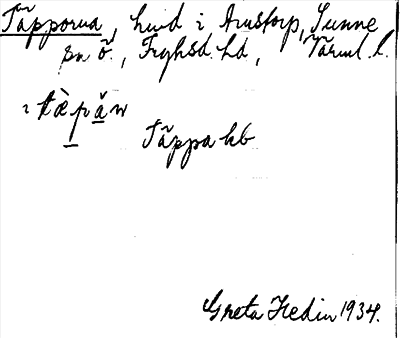 Täpporna, hmd i Arnstorp, Sunne
sn ö., Fryksd. hd, Värml. l.
i tæ̀pǎn
Täppa hb
Greta Hedin 1934.